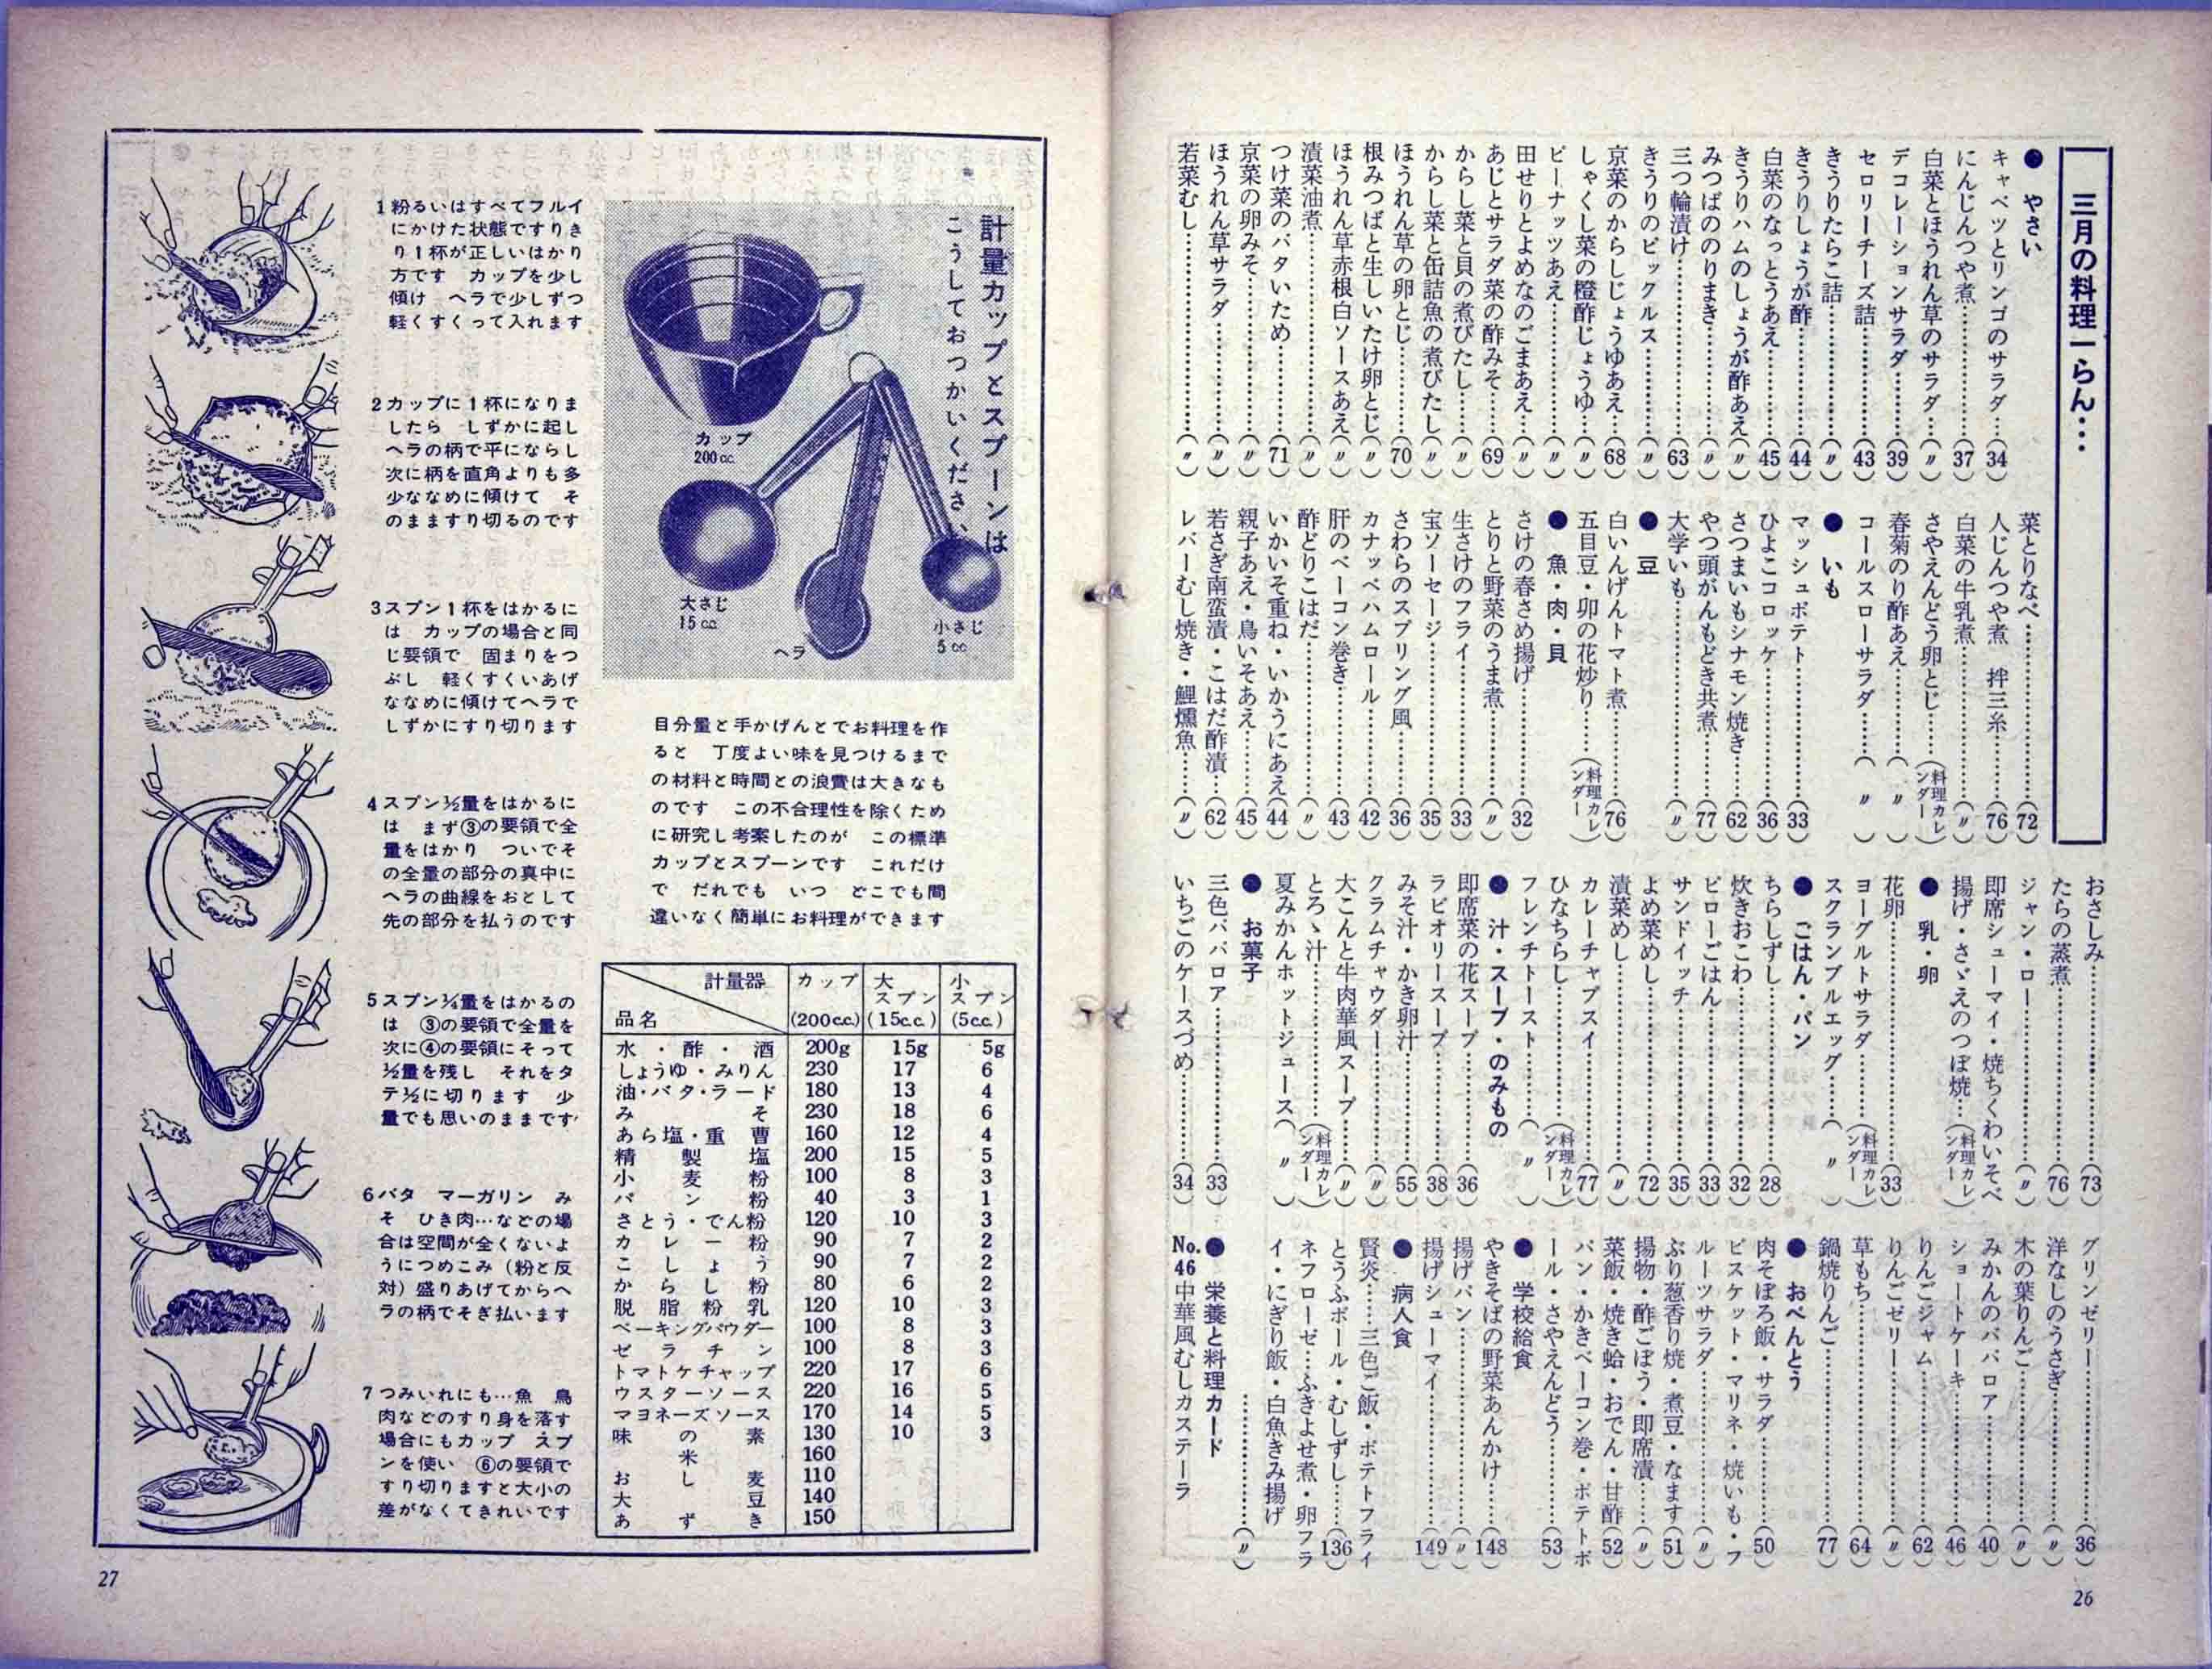 三月の料理一らん…
● やさい
キャベツとリンゴのサラダ…(34)
にんじんつや煮…………(37)
白菜とほうれん草のサラダ…(〃)
デコレーションサラダ……(39)
セロリーチーズ詰………(43)
きうりたらこ詰…………(〃)
きうりしょうが酢………(44)
白菜のなっとうあえ……(45)
きうりハムのしょうが酢あえ(〃)
みつばののりまき………(〃)
三つ輪漬け……………(63)
きうりのピックルス……(〃)
京菜のからしじょうゆあえ…(68)
しゃくし菜の橙酢じょうゆ…(〃)
ピーナッツあえ…………(〃)
田せりとよめなのごまあえ…(〃)
あじとサラダ菜の酢みそ…(69)
からし菜と貝の煮びたし…(〃)
からし菜と缶詰魚の煮びたし(〃)
ほうれん草の卵とじ……(70)
根みつばと生しいたけ卵とじ(〃)
ほうれん草赤根白ソースあえ(〃)
漬菜油煮……………(〃)
つけ菜のバタいため……(71)
京菜の卵みそ…………(〃)
ほうれん草サラダ………(〃)
若菜むし……………(〃)
菜とりなべ……………(72)
人じんつや煮 拌三糸……(76)
白菜の牛乳煮…………(〃)
さやえんどう卵とじ……(料理カレンダー)
春菊のり酢あえ………(〃)
コールスローサラダ……(〃)
● いも
マッシュポテト…………(33)
ひよこコロッケ…………(36)
さつまいもシナモン焼き…(62)
やつ頭がんもどき共煮……(77)
大学いも……………(〃)
● 豆
白いんげんトマト煮……(76)
五目豆・卯の花炒り……(料理カレンダー)
● 魚・肉・貝
さけの春さめ揚げ………(32)
とりと野菜のうま煮……(〃)
生さけのフライ…………(33)
宝ソーセージ…………(35)
さわらのスプリング風……(36)
カナッペハムロール……(42)
肝のベーコン巻き………(43)
酢どりこはだ…………(〃)
いかいそ重ね・いかうにあえ(44)
親子あえ・鳥いそあえ……(45)
若さぎ南蛮漬・こはだ酢漬…(62)
レバーむし焼き・鯉燻魚…(〃)
おさしみ……………(73)
たらの蒸煮……………(76)
ジャン・ロー…………(〃)
即席シューマイ・焼ちくわいそべ
揚げ・さゞえのつぼ焼…(料理カレンダー)
● 乳・卵
花卵………………(33)
ヨーグルトサラダ………(料理カレンダー)
スクランブルエッグ……(〃)
● ごはん・パン
ちらしずし……………(28)
炊きおこわ……………(32)
ピローごはん…………(33)
サンドイッチ…………(35)
よめ菜めし……………(72)
漬菜めし……………(〃)
カレーチャプスイ………(77)
ひなちらし……………(料理カレンダー)
フレンチトースト………(〃)
● 汁・スープ・のみもの
即席菜の花スープ………(36)
ラビオリースープ………(38)
みそ汁・かき卵汁………(55)
クラムチャウダー………(〃)
大こんと牛肉華風スープ…(〃)
とろゝ汁……………(料理カレンダー)
夏みかんホットジュース(〃)
● お菓子
三色ババロア…………(33)
いちごのケースづめ……(34)
グリンゼリー…………(36)
洋なしのうさぎ………(〃)
木の葉りんご…………(〃)
みかんのババロア………(40)
ショートケーキ………(46)
りんごジャム…………(62)
りんごゼリー…………(〃)
草もち………………(64)
鍋焼りんご……………(77)
● おべんとう
肉そぼろ飯・サラダ……(50)
ビスケット・マリネ・焼いも・フ
ルーツサラダ…………(〃)
ぶり葱香り焼・煮豆・なます(51)
揚物・酢ごぼう・即席漬…(〃)
菜飯・焼き蛤・おでん・甘酢(52)
パン・かきベーコン巻・ポテトボ
ール・さやえんどう……(53)
● 学校給食
やきそばの野菜あんかけ…(148)
揚げパン……………(〃)
揚げシューマイ………(149)
● 病人食
賢炎……三色ご飯・ポテトフライ
とうふボール・むしずし…(136)
ネフローゼ…ふきよせ煮・卵フラ
イ・にぎり飯・白魚きみ揚げ
………………(〃)
● 栄養と料理カード
No.46 中華風むしカステーラ
26
計量カップとスプーンは
こうしておつかいくださ
カップ
200cc
大さじ
15cc
ヘラ
小さじ
5cc
目分量と手かげんとでお料理を作
ると 丁度よい味を見つけるまで
の材料と時間との浪費は大きなも
のです この不合理性を除くため
に研究し考案したのが この標準
カップとスプーンです これだけ
で だれでも いつ どこでも間
違いなく簡単にお料理ができます
計量器 カップ 大スプン 小スプン
品名 (200c.c.) (15c.c.) (5c.c.)
水・酢・酒 200g 15g 5g
しょうゆ・みりん 230 17 6
油・バタ・ラード 180 13 4
みそ 230 18 6
あら塩・重曹 160 12 4
精製塩 200 15 5
小麦粉 100 8 3
パン粉 40 3 1
さとう・でん粉 120 10 3
カレー粉 90 7 2
こしょう 90 7 2
からし粉 80 6 2
脱脂粉乳 120 10 3
ベーキングパウダー 100 8 3
ゼラチン 100 8 3
トマトケチャップ 220 17 6
ウスターソース 220 16 5
マヨネーズソース 170 14 5
味の素 130 10 3
米 160
おし麦 110
大豆 140
あずき 150
1粉るいはすべてフルイ
にかけた状態ですりき
り1杯が正しいはかり
方です カップを少し
傾け ヘラで少しずつ
軽くすくって入れます
2カップに1杯になりま
したら しずかに起し
ヘラの柄で平にならし
次に柄を直角よりも多
少ななめに傾けて そ
のまますり切るのです
3スプン1杯をはかるに
は カップの場合と同
じ要領で 固まりをつ
ぶし 軽くすくいあげ
ななめに傾けてヘラで
しずかにすり切ります
4スプン½量をはかるに
は まず③の要領で全
量をはかり ついでそ
の全量の部分の真中に
ヘラの曲線をおとして
先の部分を払うのです
5スプン¼量をはかるの
は ③の要領で全量を
次に④の要領にそって
½量を残し それをタ
テ½に切ります 少
量でも思いのままです
6バタ マーガリン み
そ ひき肉…などの場
合は空間が全くないよ
うにつめこみ(粉と反
対)盛りあげてからヘ
ラの柄でそぎ払います
7つみいれにも…魚 鳥
肉などのすり身を落す
場合にもカップ スプ
ンを使い ⑥の要領で
すり切りますと大小の
差がなくてきれいです
27